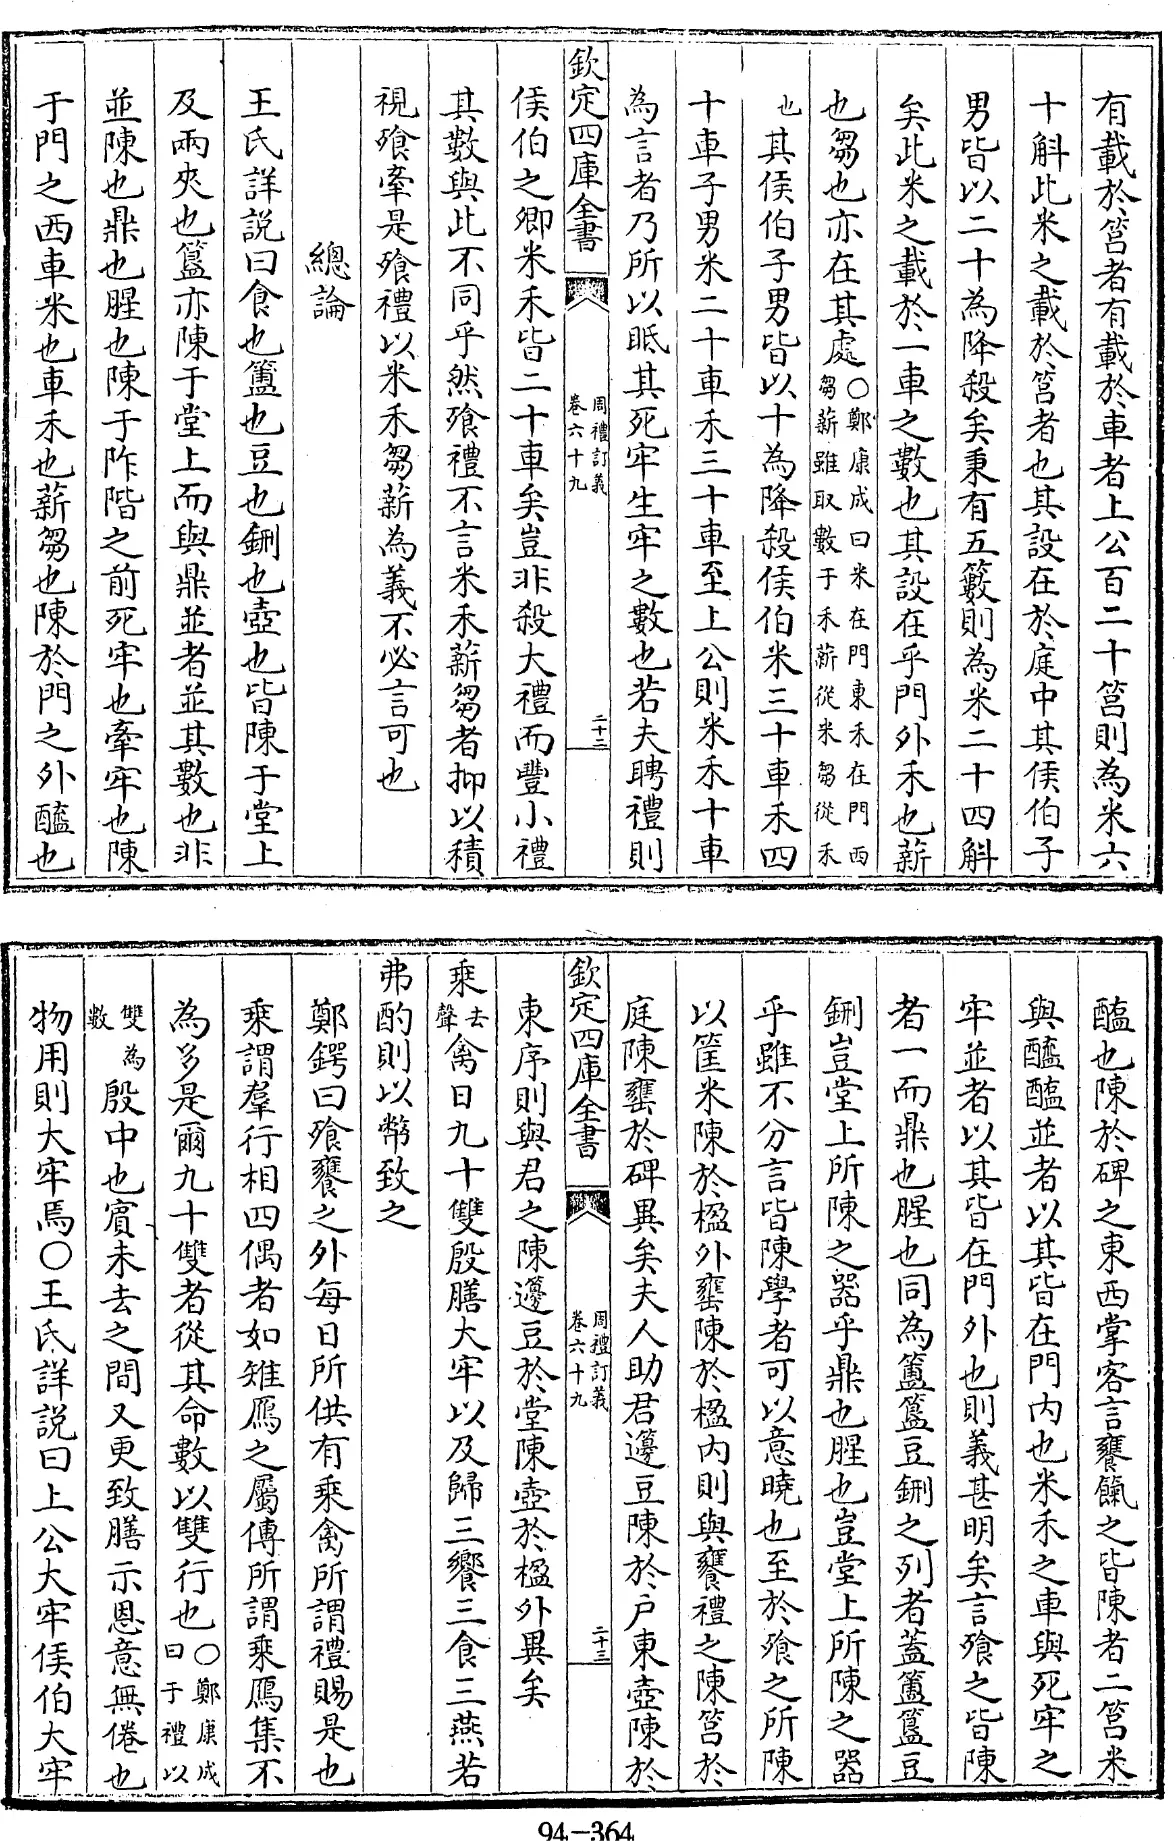 有載於筥者有載於車者上公百二十筥則為米六
十斛此米之載於筥者也其設在於庭中其侯伯子
男皆以二十為降殺矣秉有五籔則為米二十四斛
矣此米之載於一車之數也其設在乎門外禾也薪
也芻也亦在其處〇鄭康成曰米在門東禾在門西芻薪雖取數于禾薪從米芻從禾
也其侯伯子男皆以十為降殺侯伯米三十車禾四
十車子男米二十車禾三十車至上公則米禾十車
為言者乃所以眡其死牢生牢之數也若夫聘禮則
欽定四庫全書
周禮訂義
卷六十九
二十二
侯伯之卿米禾皆二十車矣豈非殺大禮而豐小禮
其數與此不同乎然飱禮不言米禾薪芻者抑以積
視飱牽是飱禮以米禾芻薪為義不必言可也
總論
王氏詳説曰食也簠也豆也鉶也壺也皆陳于堂上
及兩夾也簋亦陳于堂上而與鼎並者並其數也非
並陳也鼎也腥也陳于阼階之前死牢也牽牢也陳
于門之西車米也車禾也薪芻也陳於門之外醯也
醢也陳於碑之東西掌客言饔餼之皆陳者二筥米
與醯醢並者以其皆在門内也米禾之車與死牢之
牢並者以其皆在門外也則義甚明矣言飱之皆陳
者一而鼎也腥也同為簠簋豆鉶之列者蓋簠簋豆
鉶豈堂上所陳之器乎鼎也腥也豈堂上所陳之器
乎雖不分言皆陳學者可以意曉也至於飱之所陳
以筐米陳於楹外壅陳於楹内則與饔禮之陳筥於
庭陳壅於碑異矣夫人助君籩豆陳於户東壺陳於
欽定四庫全書
周禮訂義
卷六十九
二十三
東序則與君之陳籩豆於堂陳壺於楹外異矣
乘去聲禽日九十雙殷膳大牢以及歸三饗三食三燕若
弗酌則以幣致之
鄭鍔曰飱饔之外每日所供有乘禽所謂禮賜是也
乘謂羣行相四偶者如雉鴈之屬傳所謂乘鴈集不
為多是爾九十雙者從其命數以雙行也〇鄭康成曰于禮以
雙為數殷中也賓未去之間又更致膳示恩意無倦也
物用則大牢焉〇王氏詳説曰上公大牢侯伯大牢
94-364